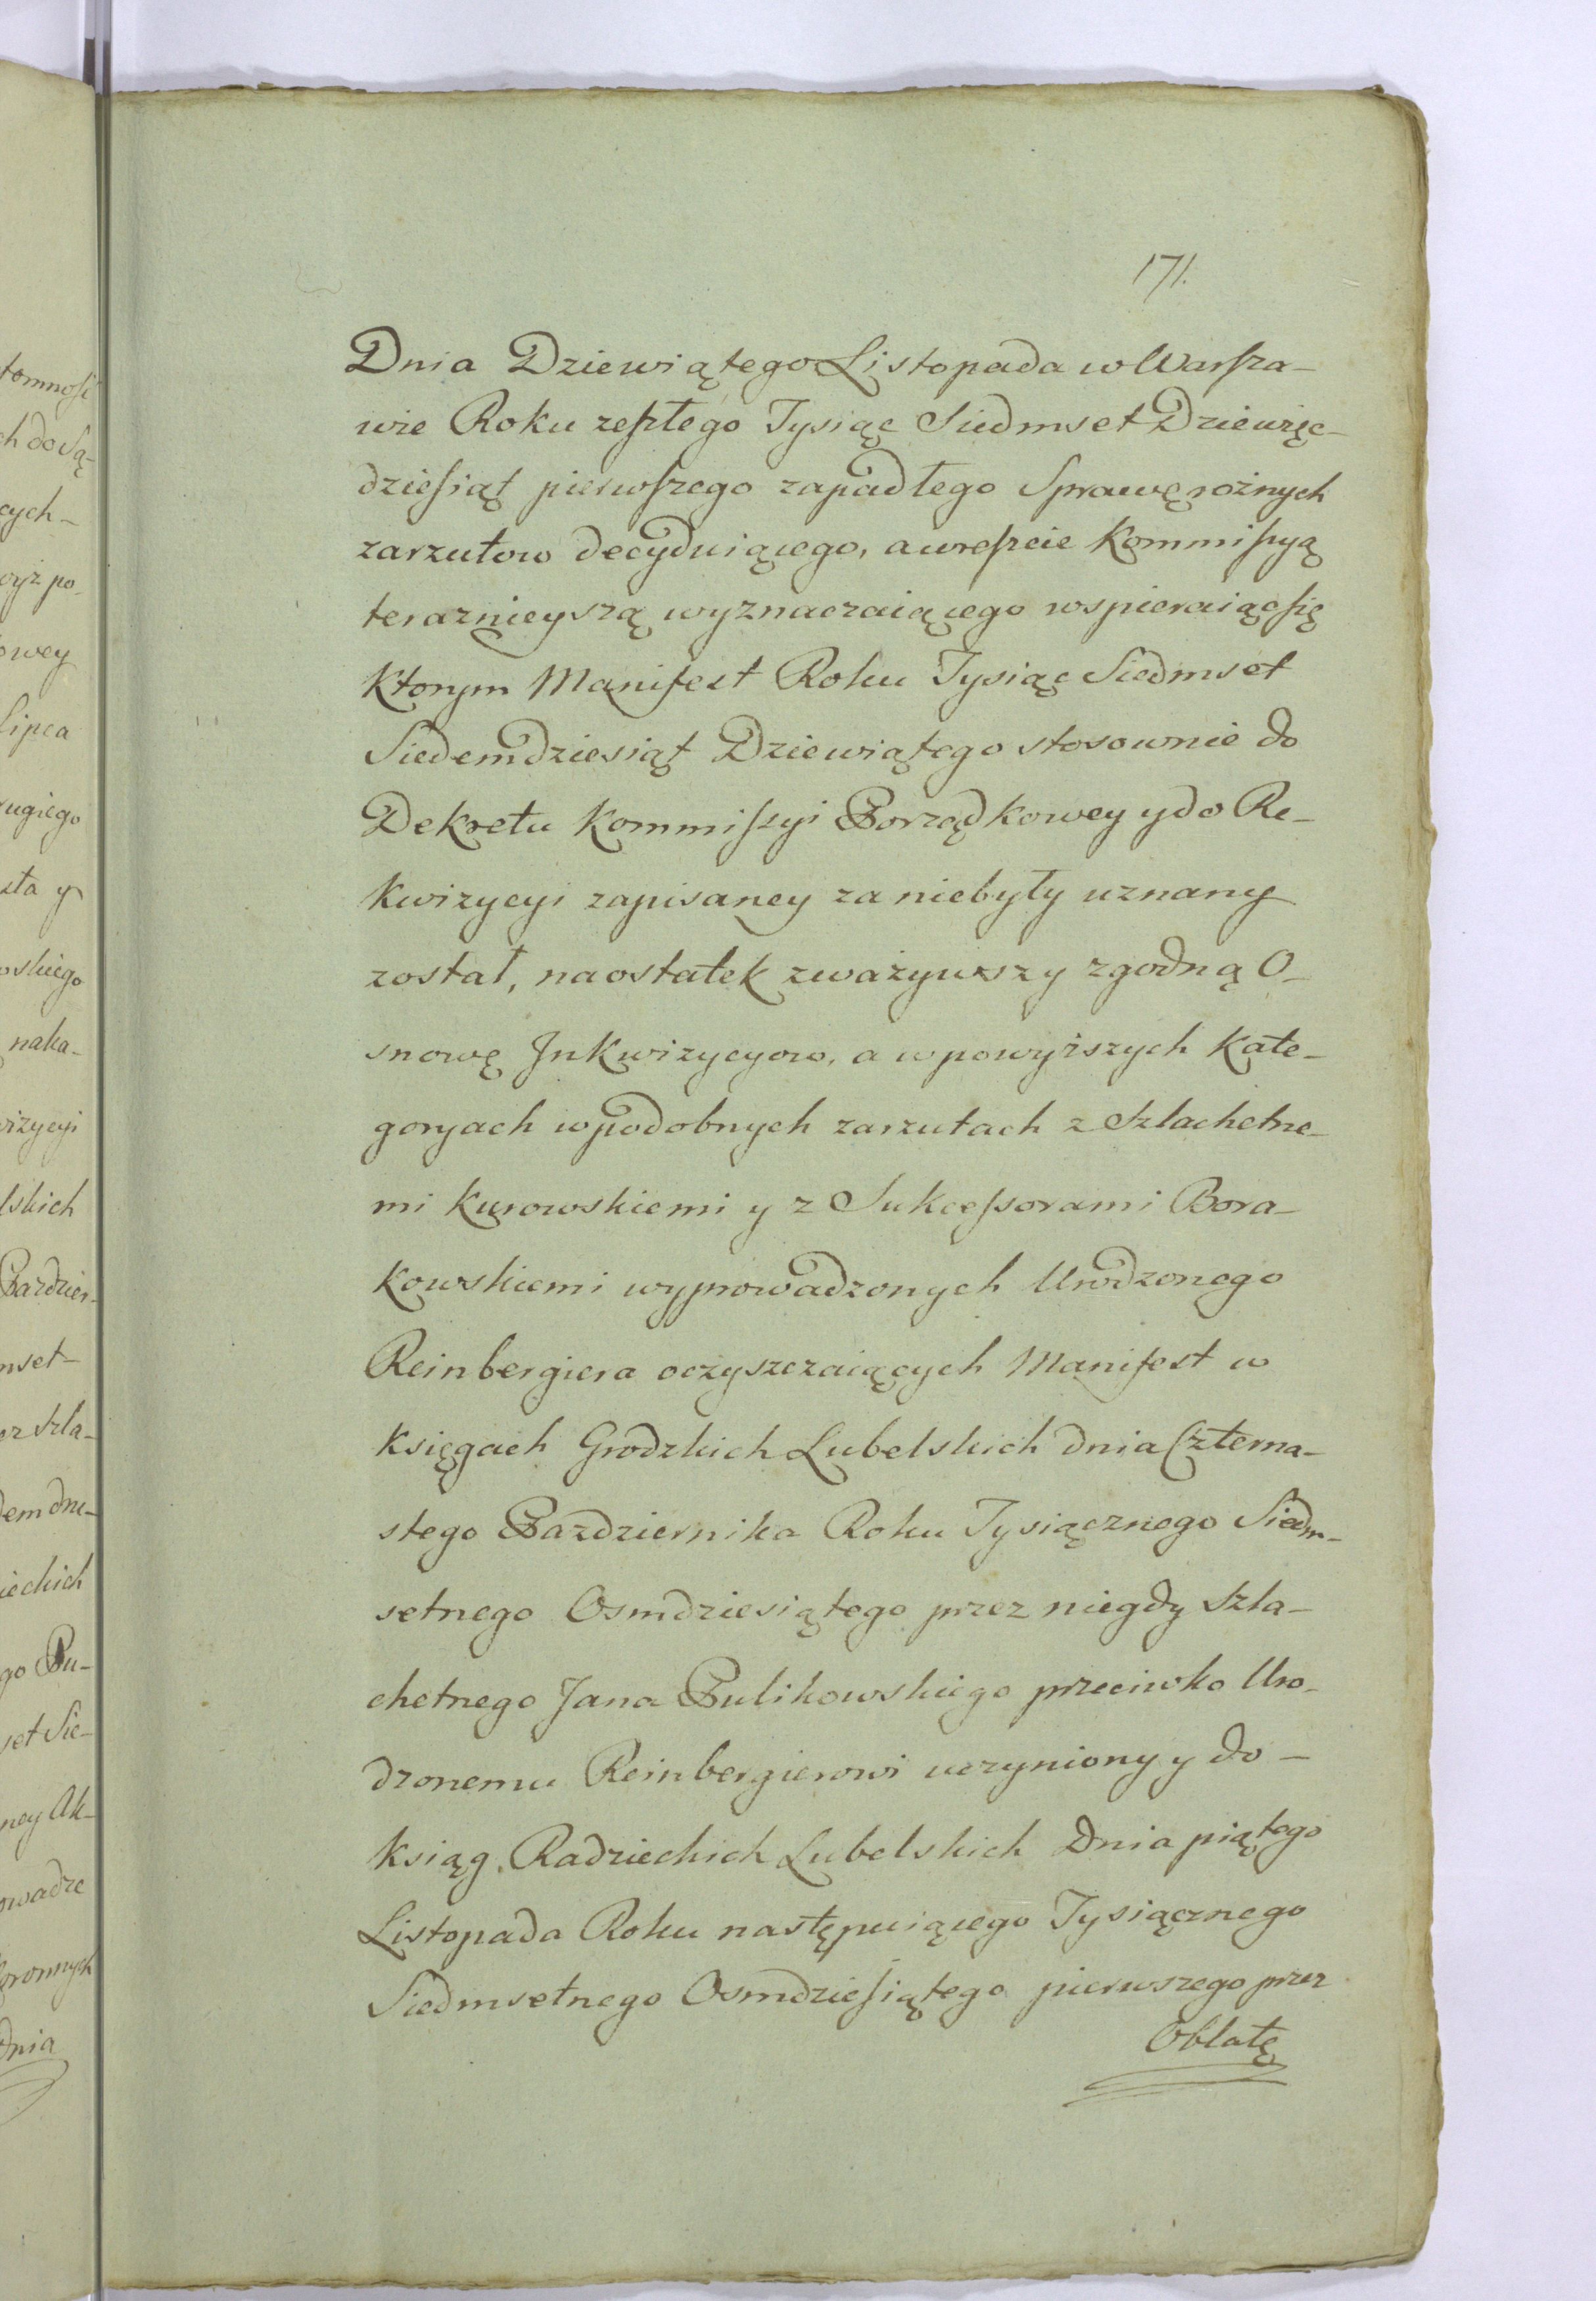 171.
Dnia Dziewiątego Listopada w Warſza-
wie Roku zeſzłego Tysiąc Siedmset Dziewięc-
dzieſiąt pierwſzego zapadłego Sprawę rożnych
zarzutow decyduiącego, a wreſzcie Kommiſsyą
teraznieyszą wyznaczaiącego wspieraiąc ſię
Ktorym Manifest Roku Tysiąc Siedmset
Siedemdziesiąt Dziewiątego stosownie do
Dekretu Kommiſsyi Porządkowey y do Re-
kwizycyi zapisaney za niebyły uznany
został, naostatek zważywszy zgodną O-
snowę Inkwizycyow, a w powyższych Kate-
goryach w podobnych zarzutach z Szlachetne-
mi Kurowskiemi y z Sukceſsorami Bora-
kowskiemi wyprowadzonych Urodzonego
Reinbergiera oczyszczaiących Manifest w
Księgach Grodzkich Lubelskich dnia Czterna-
stego Pazdziernika Roku Tysiącznego Siedm-
setnego Osmdziesiątego przez niegdy Szla-
chetnego Jana Pulikowskiego przeciwko Uro-
dzonemu Reinbergierowi uczyniony y do-
Ksiąg Radzieckich Lubelskich Dnia piątego
Listopada Roku następuiącego Tysiącznego
Siedmsetnego Osmdzieſiątego pierwszego przez
Oblatę